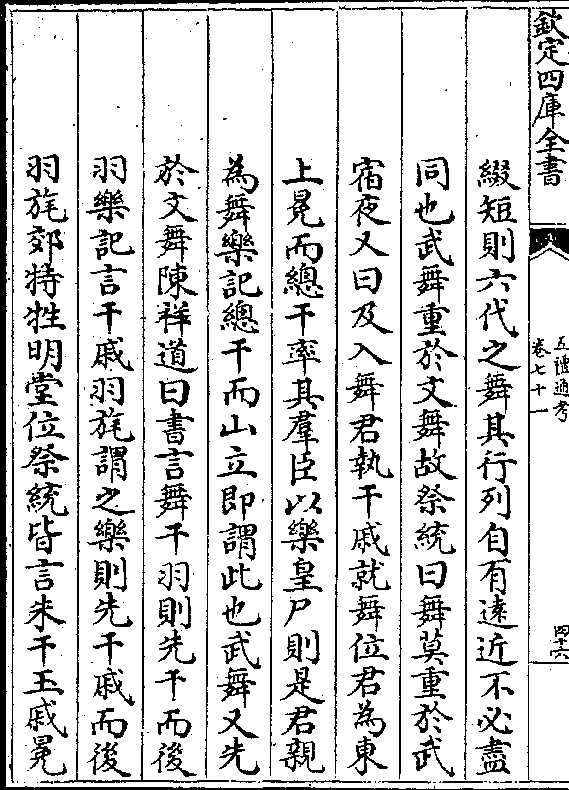 欽定四庫全書
五禮通考
卷七十一
四十六
綴短則六代之舞其行列自有遠近不必盡
同也武舞重於文舞故祭統曰舞莫重於武
宿夜又曰及入舞君執干戚就舞位君為東
上冕而總干率其羣臣以樂皇尸則是君親
為舞樂記總干而山立即謂此也武舞又先
於文舞陳祥道曰書言舞干羽則先干而後
羽樂記言干戚羽旄謂之樂則先干戚而後
羽旄郊特牲明堂位祭統皆言朱干玉戚冕